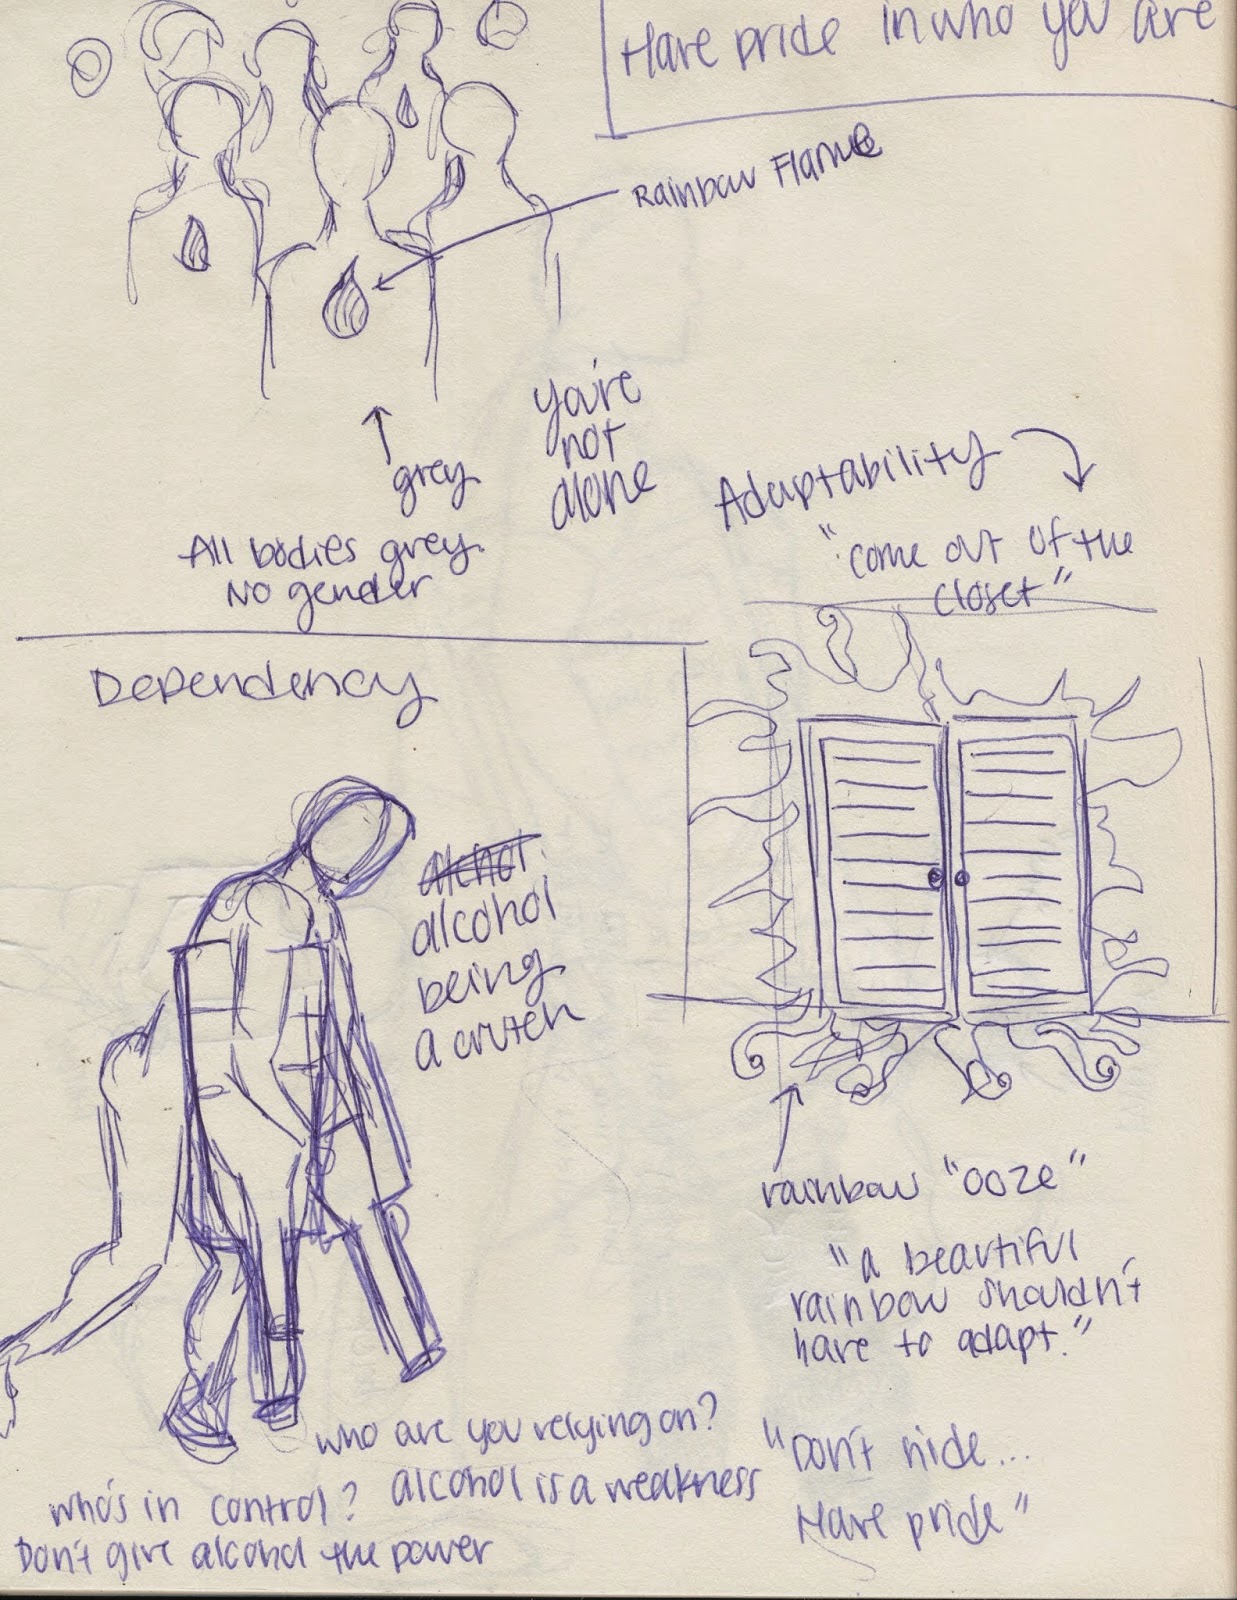 Have pride in who you are
Rainbow Flame
grey
you're
not
alone
All bodies grey.
No gender
Adaptability
"come out of the
closet"
Dependency
alchol
alcohol
being
a crutch
rainbow "ooze"
"a beautiful
rainbow shouldn't
have to adapt."
who are you relying on?
alcohol is a weakness
who's in control?
Don't give alcohol the power
"Don't hide...
Have pride"